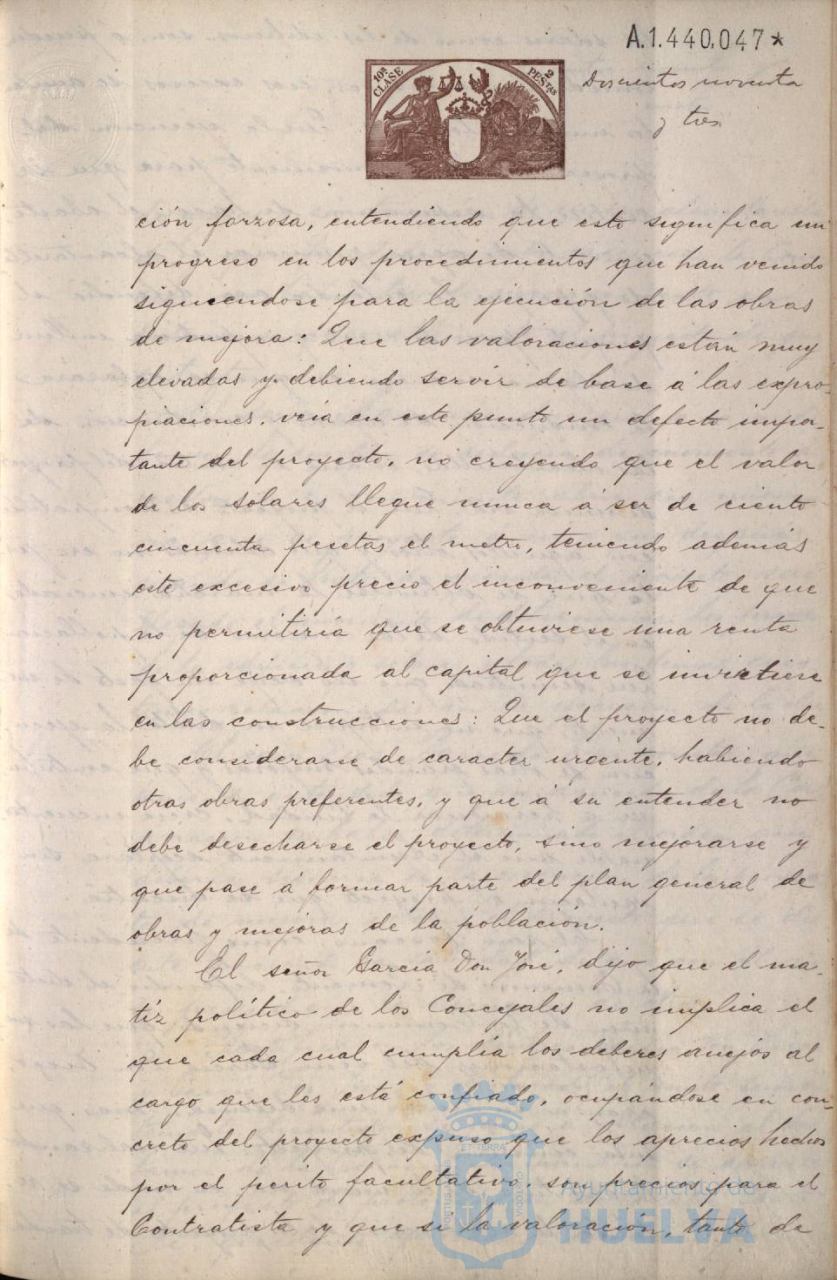 A.1.440.047*
10ª CLASE 2 PESETAS
Doscientos noventa
y tres
ción forzosa, entendiendo que esto significa un
progreso en los procedimientos que han venido
siguiendose para la ejecución de las obras
de mejora: Que las valoraciones están muy
elevadas y debiendo servir de base á las expro-
piaciones, veia en este punto un defecto impor-
tante del proyecto, no creyendo que el valor
de los solares llegue nunca á ser de ciento
cincuenta pesetas el metro, teniendo además
este excesivo precio el inconveniente de que
no permitiría que se obtuviese una renta
proporcionada al capital que se invirtiese
en las construcciones: Que el proyecto no de-
be considerarse de caracter urgente, habiendo
otras obras preferentes, y que á su entender no
debe desecharse el proyecto, sino mejorarse y
que pase á formar parte del plan general de
obras y mejoras de la población.
El señor García Don José, dijo que el ma-
tíz político de los Concejales no implica el
que cada cual cumplía los deberes anejos al
cargo que les está confiado, ocupándose en con-
creto del proyecto expuso que los aprecios hechos
por el perito facultativo, son precios para el
Contratista y que si la valoracion, tanto de
Ayuntamiento de
HUELVA